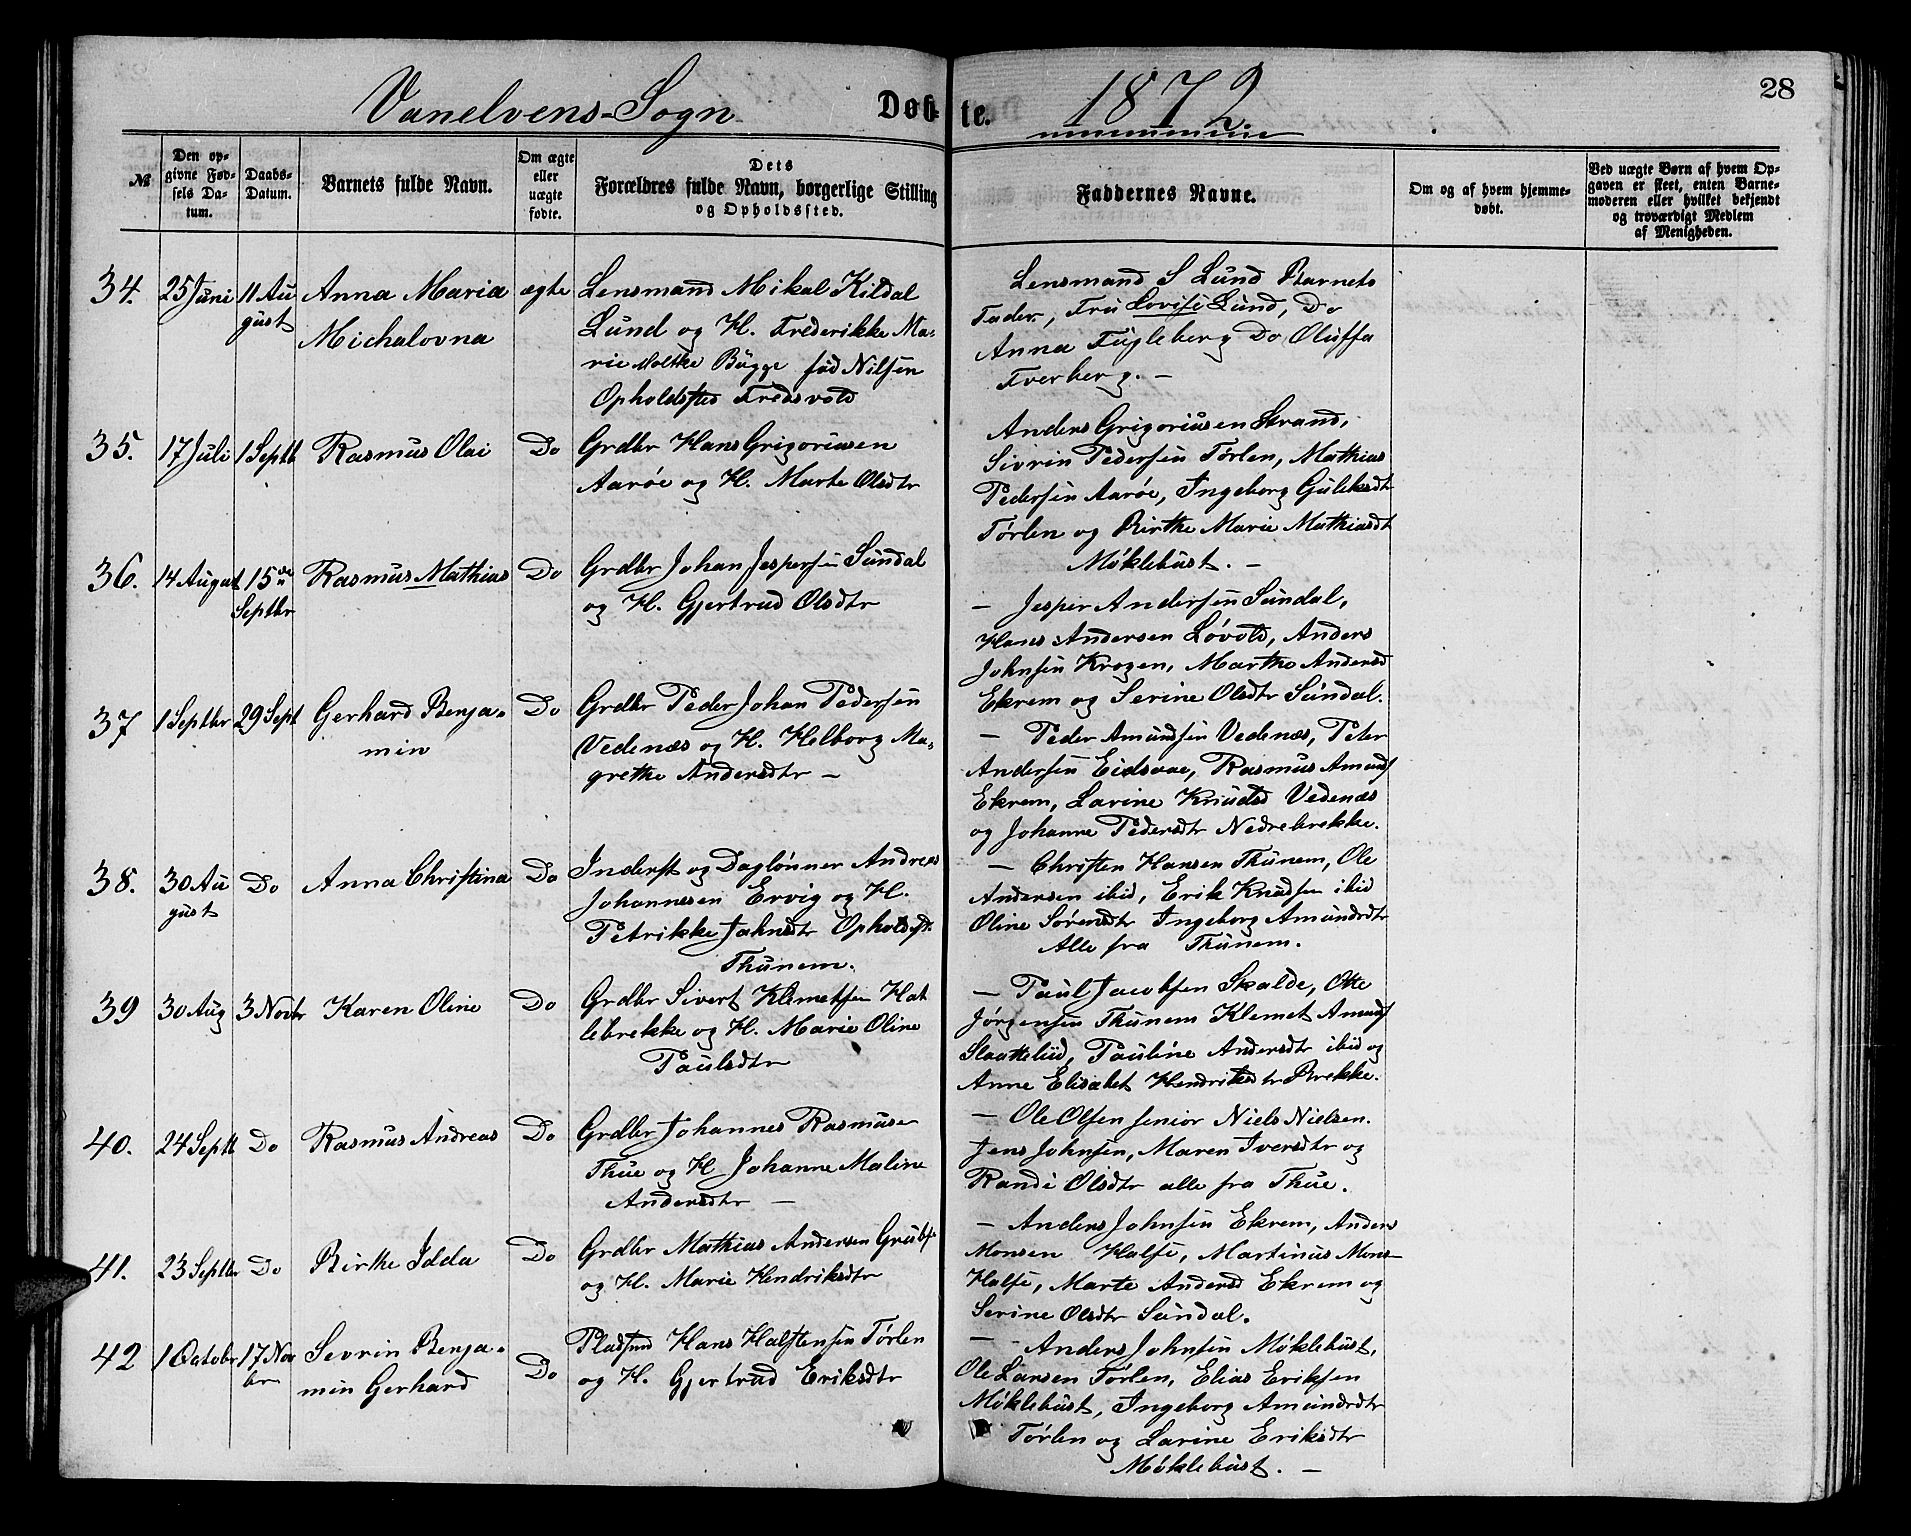 Vanelvens-Sogn Døb- te. 1872. 28
№ Den opgivne Fødsels Datum. Daabs-Datum. Barnets fulde Navn. Om ægte eller uægte fødte. Dets Forældres fulde Navn, borgerlige Stilling og Opholdssted. Faddernes Navne. Om og af hvem hjemmedøbt. Ved uægte Børn af hvem Opgaven er skeet, enten Barnemoderen eller hvilket bekjendt og troværdigt Medlem af Menigheden.
34. 25 Juni 11 Au
gust
Anna Maria
Michalovna
ægte
Lensmand Mikal Kildal
Lund og H. Frederikke Ma-
rie Moltke Bügge fød Nilsen
Opholdssted Fredsvold
Lensmand S Lund Barnets
Fader, Frü Lovise Lünd, Do
Anna Fügleberg Do Oluffa
Tverberg. —
35. 17 Juli 1 Septb Rasmus Olai Do
Grdbr Hans Grigoriusen
Aarøe og H. Marte Olsdtr
Anders Grigoriusen Strand,
Sivrin Pedersen Tørlen, Mathias
Pedersen Aarøe, Ingeborg Güleksdt
Tørlen og Birthe Marie Mathiasdt
Møklebust. —
36. 14 August 15de
Septbr
Rasmus Mathias Do
Grdbr Johan Jespersen Sündal
og H. Gjertrud Olsdtr
— Jesper Andersen Sündal,
Hans Andersen Løvold, Anders
Johnsen Krogen, Marthe Andersd
Ekrem og Serine Olsdtr Sündal.
37 1 Septbr 29 Sept Gerhard Benja-
min
Do
Grdbr Peder Johan Pedersen
Vedenæs og H. Helborg Ma-
grethe Andersdtr —
— Peder Amundsen Vedenæs, Peter
Andersen Eidsvae, Rasmus Amunds
Ekrem, Larine Knudsd Vedenæs
og Johanne Pedersdtr Nedrebrekke.
38. 30 Au
gust
Do Anna Christina Do
Inderst og Daglønner Andreas
Johannesen Ervig og H.
Petrikke Jahnsdtr Opholdsst.
Thunem.
— Christen Hansen Thünem, Ole
Andersen ibid, Erik Knudsen ibid
Oline Sørensdtr Ingeborg Amündsdtr
Alle fra Thünem.
39 30 Aug 3 Novbr Karen Oline Do
Grdbr Sivert Klemetsen Hat
lebrekke og H. Marie Oline
Paulsdtr
— Paul Jacobsen Skalde, Otte
Jørgensen Thunem Klemet Amunds
Slaattelid, Pauline Andersdtr ibid og
Anne Elisabet Hendriksdtr Brekke.
40. 24 Septb Do Rasmus Andreas Do
Grdbr Johannes Rasmusen
Thue og H Johanne Maline
Andersdtr —
— Ole Olsen senior Niels Nielsen.
Jens Johnsen, Maren Iversdtr og
Randi Olsdtr alle fra Thue.
41. 23 Septbr Do Birthe Idda Do
Grdbr Mathias Andersen
og H. Marie Hendriksdtr
— Anders Johnsen Ekrem, Anders
Monsen Halse, Martinus Mons-
Halse, Marte Andersd Ekrem og
Serine Olsdtr Sündal.
42 1 October 17 Nov
br
Sevrin Benja-
min Gerhard
Do
Pladsmd Hans Halstensen Tørlen
og H. Gjertrud Eriksdtr
— Anders Johnsen Møklebust,
Ole Larsen Tørlen, Elias Eriksen
Møklebust, Ingeborg Amündsdtr
Tørlen og Larine Eriksdtr
Møklebust. —